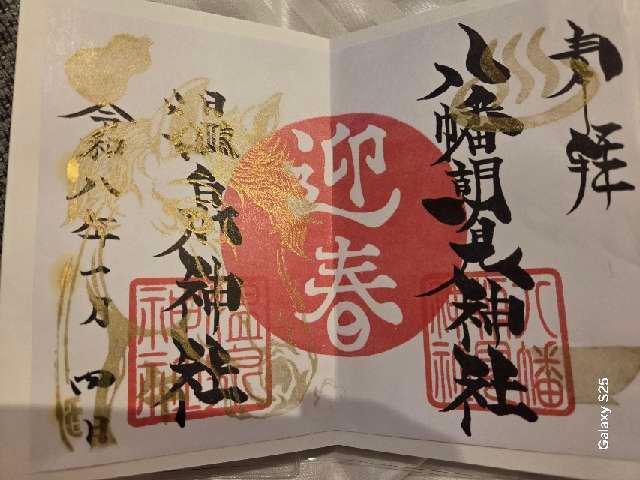 奉拝
八幡朝見神社
迎春
温泉神社
令和八年一月四日
八幡
神社
温泉
神社
Galaxy S25